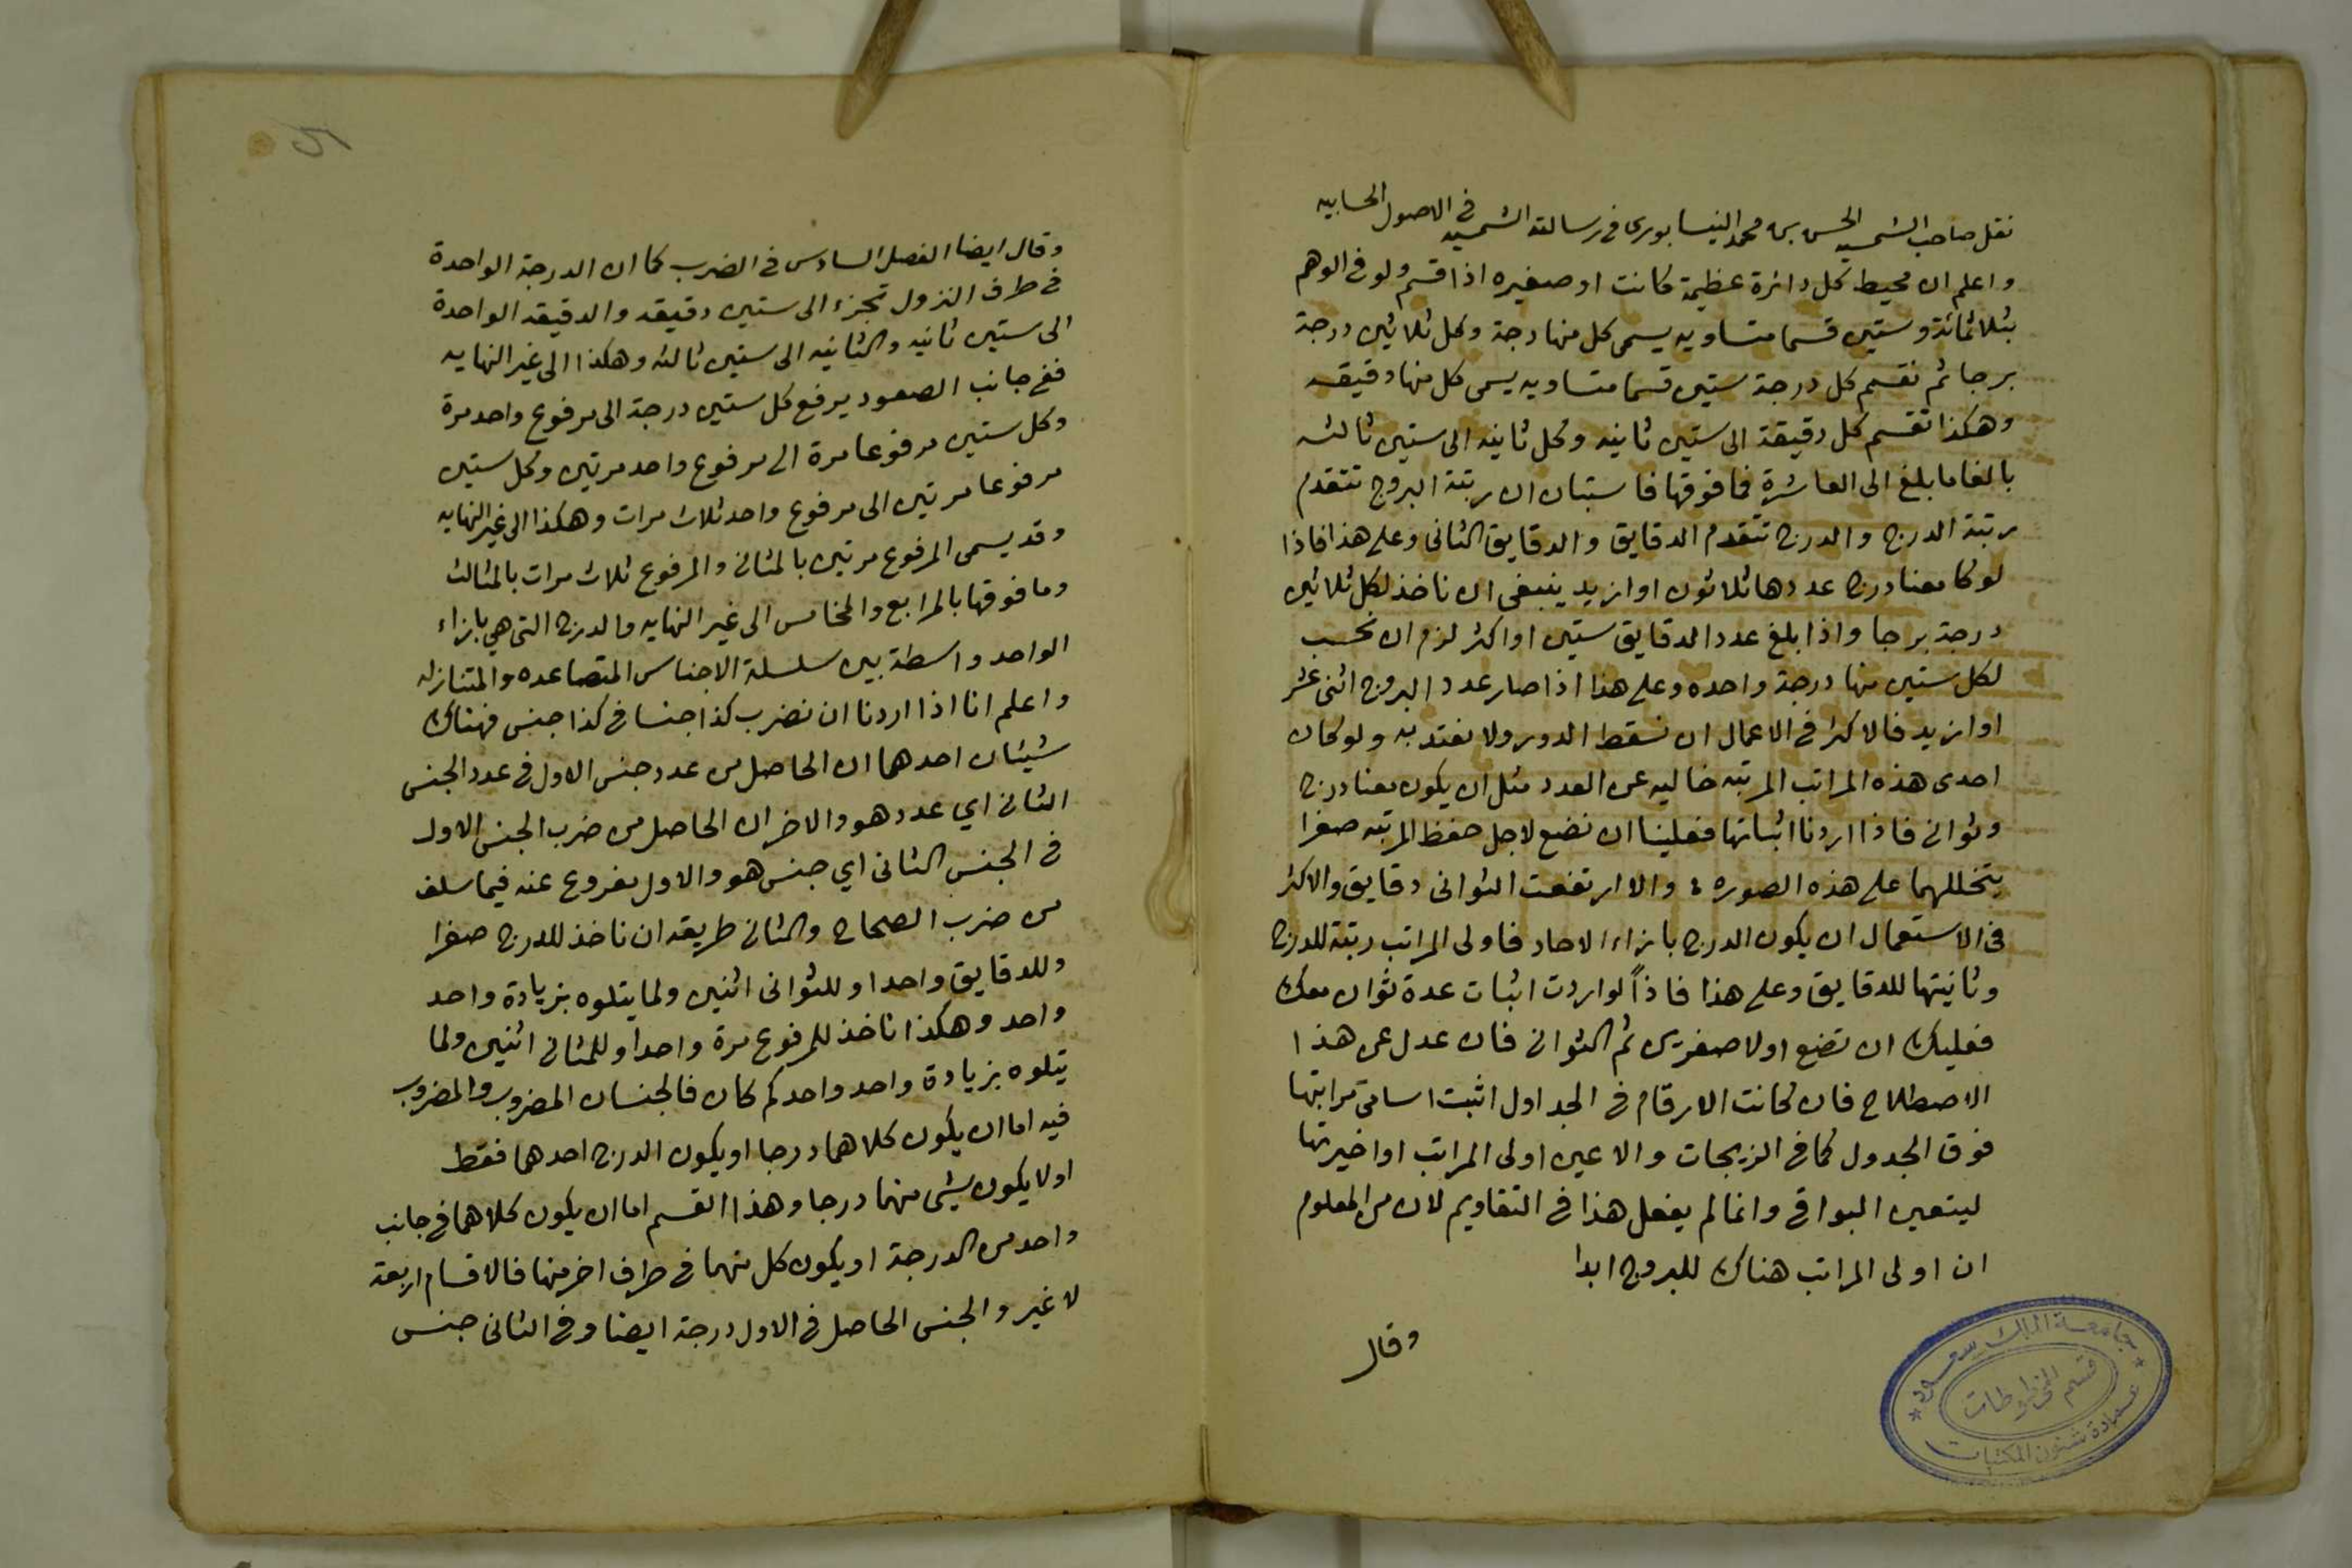 نقل صاحب الشمسيه الحسن بن محمد النيسابورى فى رسالته الشمسيه فى الاصول الحسابيه
واعلم ان محيط كل دائرة عظيمة كانت او صغيره اذا قسم ولو فى الوهم
بثلاثمائة وستين قسما متساويه يسمى كل منها درجة وكل ثلاثين درجة
برجا ثم نقسم كل درجة ستين قسما متساويه يسمى كل منها دقيقه
وهكذا تقسم كل دقيقة الى ستين ثانيه وكل ثانيه الى ستين ثالثه
بالغا ما بلغ الى العاشرة فما فوقها فاستبان ان رتبة البروج تتقدم
رتبة الدرج والدرج تتقدم الدقايق والدقايق الثانى وعلى هذا فاذا
لو كا معنا درج عددها ثلاثون او ازيد ينبغى ان ناخذ لكل ثلاثين
درجة برجا واذا بلغ عدد الدقايق ستين او اكثر لزم ان نحسب
لكل ستين منها درجة واحده وعلى هذا اذا صار عدد البروج اثنى عشر
او ازيد فالاكثر فى الاعمال ان نسقط الدور ولا نعتد به ولو كان
احدى هذه المراتب المرتبه خاليه عن العدد مثل ان يكون معنا درج
وثوانى فاذا اردنا اثباتها فعلينا ان نضع لاجل حفظ المرتبه صفرا
يتخللهما على هذه الصوره والا ارتفعت الثوانى دقايق والاكثر
فى الاستعمال ان يكون الدرج بازاء الاحاد فاولى المراتب رتبة للدرج
وثانيتها للدقايق وعلى هذا فاذاً لو اردت اثبات عدة ثوان معك
فعليك ان تضع اولا صفرين ثم الثوانى فان عدل عن هذا
الاصطلاح فان كانت الارقام فى الجداول اثبت اسامى مراتبها
فوق الجدول كما فى الزيجات والا عين اولى المراتب او اخيرتها
ليتعين البواقى وانما لم يفعل هذا فى التقاويم لان من المعلوم
ان اولى المراتب هناك للبروج ابدا
وقال
جامعة الملك سعود
قسم المخطوطات
عمادة شئون المكتبات
وقال ايضا الفصل السادس فى الضرب كما ان الدرجة الواحدة
فى طرف النزول تجزء الى ستين دقيقه والدقيقه الواحدة
الى ستين ثانيه والثانيه الى ستين ثالثه وهكذا الى غير النهايه
ففى جانب الصعود يرفع كل ستين درجة الى مرفوع واحد مرة
وكل ستين مرفوعا مرة الى مرفوع واحد مرتين وكل ستين
مرفوعا مرتين الى مرفوع واحد ثلاث مرات وهكذا الى غير النهايه
وقد يسمى المرفوع مرتين بالمثانى والمرفوع ثلاث مرات بالمثالث
وما فوقها بالمرابع والمخامس الى غير النهايه والدرج التى هي بازاء
الواحد واسطة بين سلسلة الاجناس المتصاعده والمتنازله
واعلم انا اذا اردنا ان نضرب كذا جنسا فى كذا جنس فهناك
شيئان احدهما ان الحاصل من عدد جنس الاول فى عدد الجنس
الثانى اي عدد هو والاخر ان الحاصل من ضرب الجنس الاول
فى الجنس الثانى اي جنس هو والاول مفروغ عنه فيما سلف
من ضرب الصحاح والثانى طريقه ان ناخذ للدرج صفرا
وللدقايق واحدا وللثوانى اثنين ولما يتلوه بزيادة واحد
واحد وهكذا ناخذ للمرفوع مرة واحدا وللمثانى اثنين ولما
يتلوه بزيادة واحد واحد كم كان فالجنسان المضروب والمضروب
فيه اما ان يكون كلاهما درجا او يكون الدرج احدهما فقط
اولا يكون شيئ منهما درجا وهذا القسم اما ان يكون كلاهما فى جانب
واحد من الدرجة او يكون كل منهما فى طرف اخر منها فالاقسام اربعة
لا غير والجنس الحاصل فى الاول درجة ايضا وفى الثانى جنس